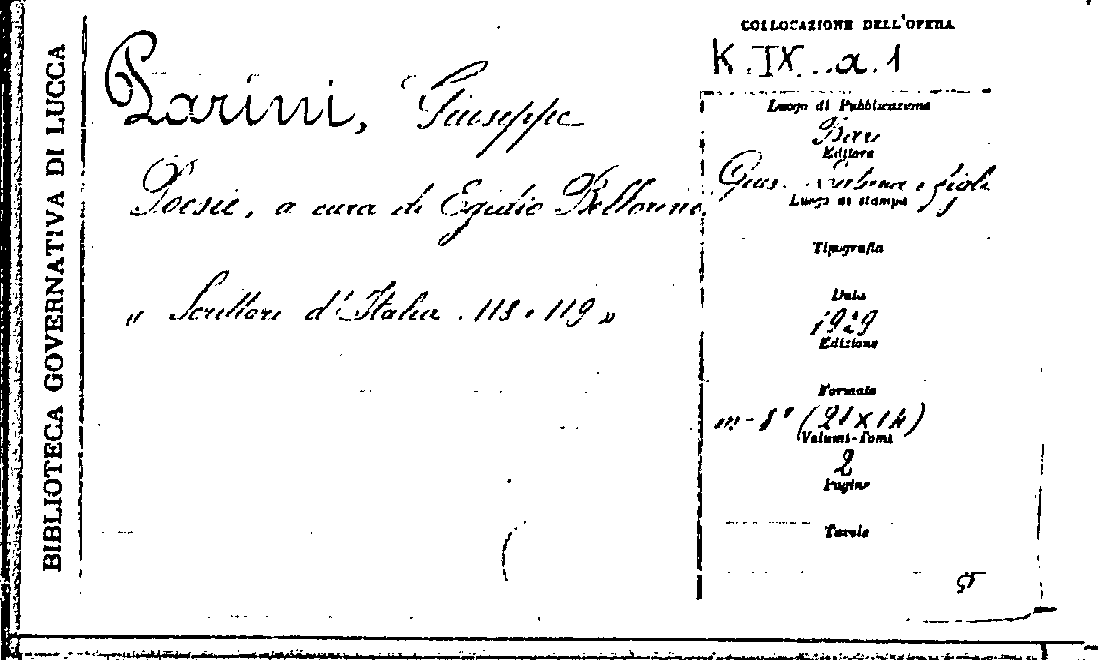 BIBLIOTECA GOVERNATIVA DI LUCCA
Parini, Giuseppe
Poesie, a cura di Egidio Bellorini
"Scrittori d'Italia. 118 e 119"
COLLOCAZIONE DELL'OPERA
K.IX.a.1
Luogo di Pubblicazione
Bari
Editore
Gius. Laterza e figli
Luogo di stampa
Tipografia
Data
1929
Edizione
Formato
in-8° (21 x 14)
Volumi-Tomi
2
Pagine
Tavole